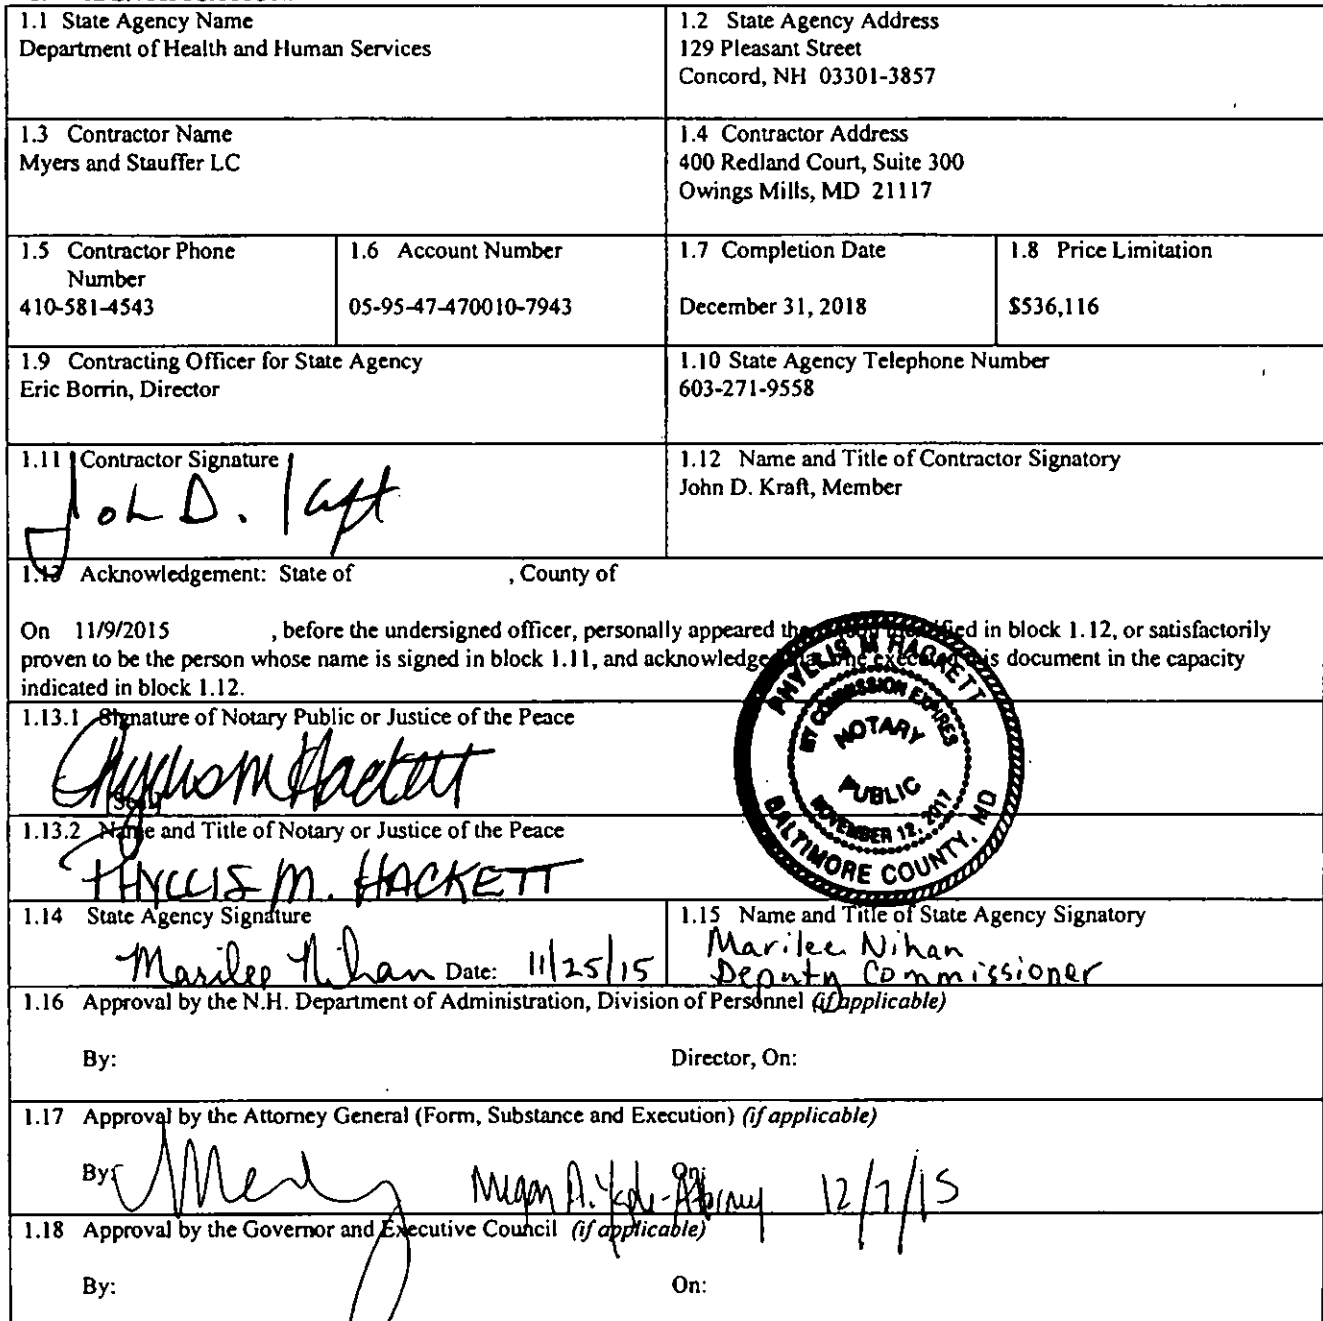 1.1 State Agency Name
Department of Health and Human Services
1.2 State Agency Address
129 Pleasant Street
Concord, NH 03301-3857
1.3 Contractor Name
Myers and Stauffer LC
1.4 Contractor Address
400 Redland Court, Suite 300
Owings Mills, MD 21117
1.5 Contractor Phone
Number
410-581-4543
1.6 Account Number
05-95-47-470010-7943
1.7 Completion Date
December 31, 2018
1.8 Price Limitation
$536,116
1.9 Contracting Officer for State Agency
Eric Borrin, Director
1.10 State Agency Telephone Number
603-271-9558
1.11 Contractor Signature
John D. Kraft
1.12 Name and Title of Contractor Signatory
John D. Kraft, Member
1.13 Acknowledgement: State of , County of
On 11/9/2015 , before the undersigned officer, personally appeared the in block 1.12, or satisfactorily
proven to be the person whose name is signed in block 1.11, and document in the capacity
indicated in block 1.12.
PHYLLIS M HACKETT
MY COMMISSION EXPIRES
NOTARY
PUBLIC
NOVEMBER 12, 2017
BALTIMORE COUNTY, MD
1.13.1 Signature of Notary Public or Justice of the Peace
Phyllis M Hackett
1.13.2 Name and Title of Notary or Justice of the Peace
PHYLLIS M. HACKETT
1.14 State Agency Signature
Marilee Nihan Date: 11/25/15
1.15 Name and Title of State Agency Signatory
Marilee Nihan
Deputy Commissioner
1.16 Approval by the N.H. Department of Administration, Division of Personnel (if applicable)
By: Director, On:
1.17 Approval by the Attorney General (Form, Substance and Execution) (if applicable)
By: Megan A. On: 12/7/15
1.18 Approval by the Governor and Executive Council (if applicable)
By: On: